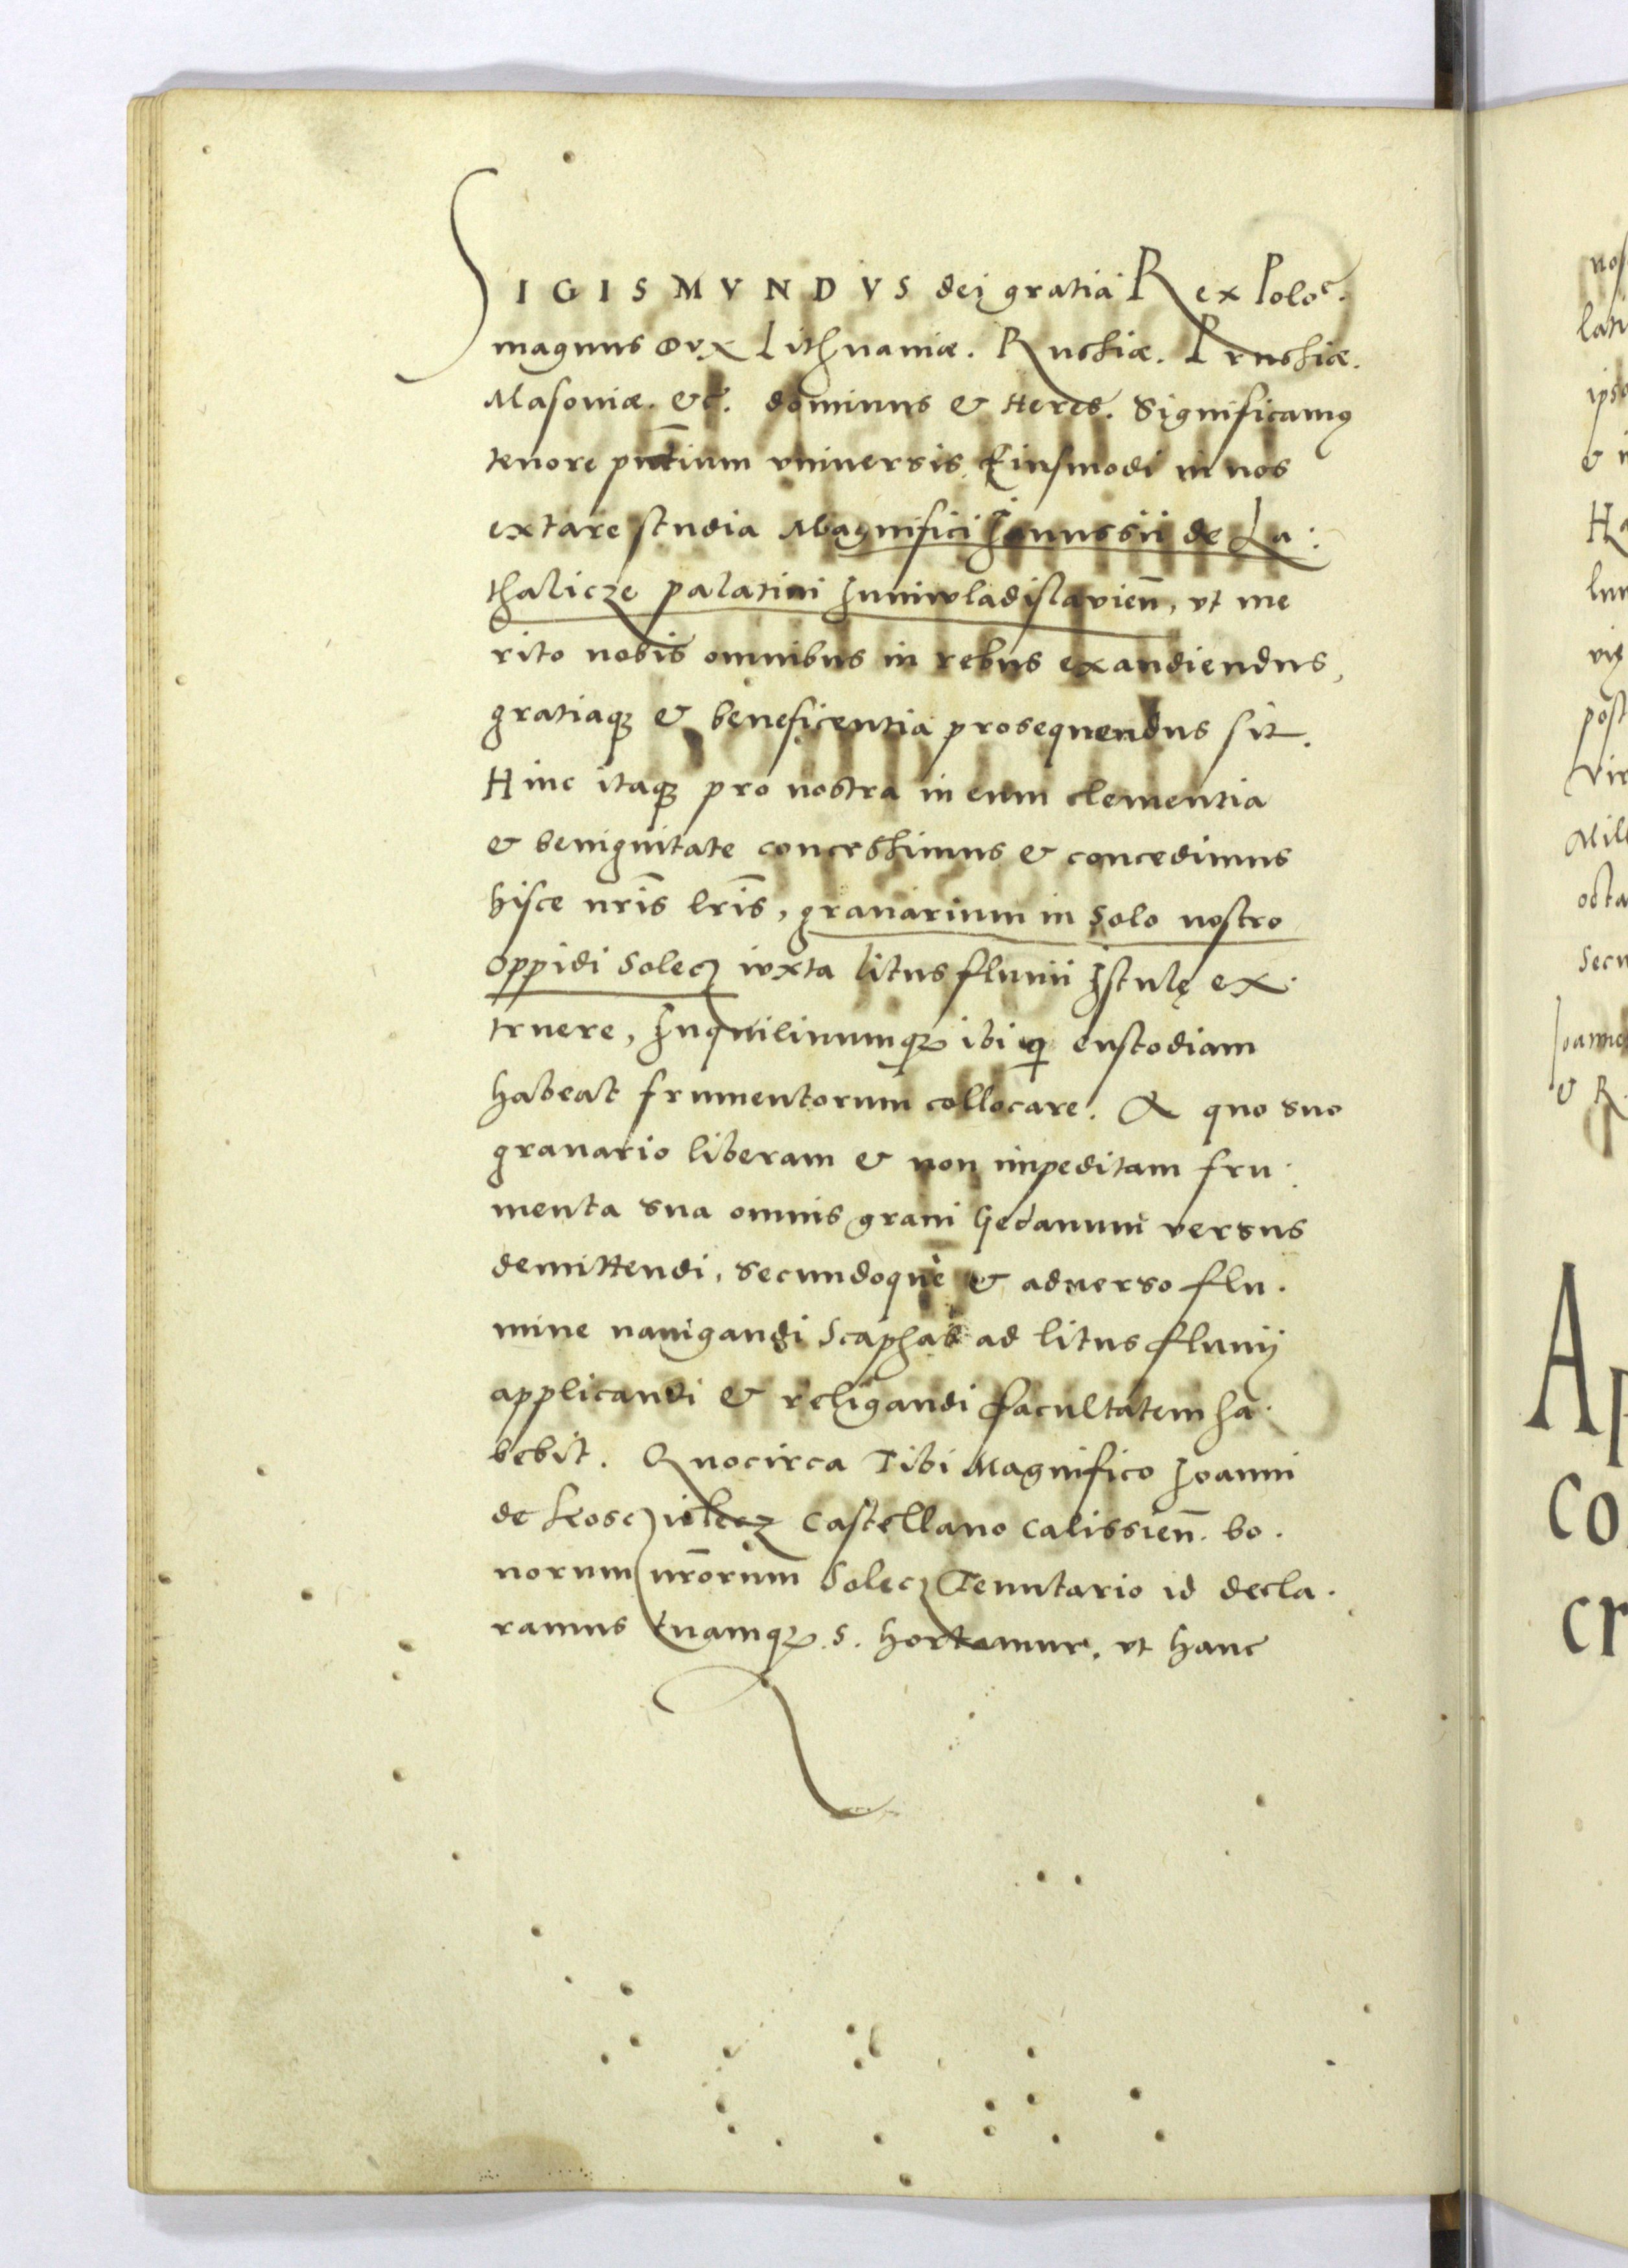 SIGISMVNDVS dei gratia Rex Poloe.
magnus Dux Lithuaniæ. Russiæ. Prussiæ.
Masoviæ. &c̄. dominus & Heres. Significamꝰ
tenore pn̄tium vniuersis, Eiusmodi in nos
extare studia Magnifici Janussii de La:
thalicze palatini Juniwladislavien̄, vt me
rito nobis omnibus in rebus exaudiendus,
gratiaqꝫ & beneficentia prosequendus sit.
Hinc itaqꝫ pro nostra in eum clementia
& benignitate concessimus & concedimus
hisce nr̄is lr̄is, granarium in solo nostro
oppidi Solecz iuxta litus fluuii Istulę ex.
truere, Inquilinumqꝫ ibi qi custodiam
habeat frumentorum collocare. A quo suo
granario liberam & non impeditam fru:
menta sua omnis grani Gedanum versus
demittendi, secundoque & aduerso flu.
mine nauigandi Scaphas ad litus fluuij
applicandi & religandi facultatem ha.
bebit. Quocirca Tibi Magnifico Joanni
de Coscielecz Castellano Calissien̄. bo.
norum nr̄orum Solecz Tenutario id decla.
ramus tuamqꝫ .S. hortamur, vt hanc
nos
lati
ips
& i
Ha
lun
vig
post
Vir
Mill
octa
Secu
Joanne
& R.
Ap
co
cr